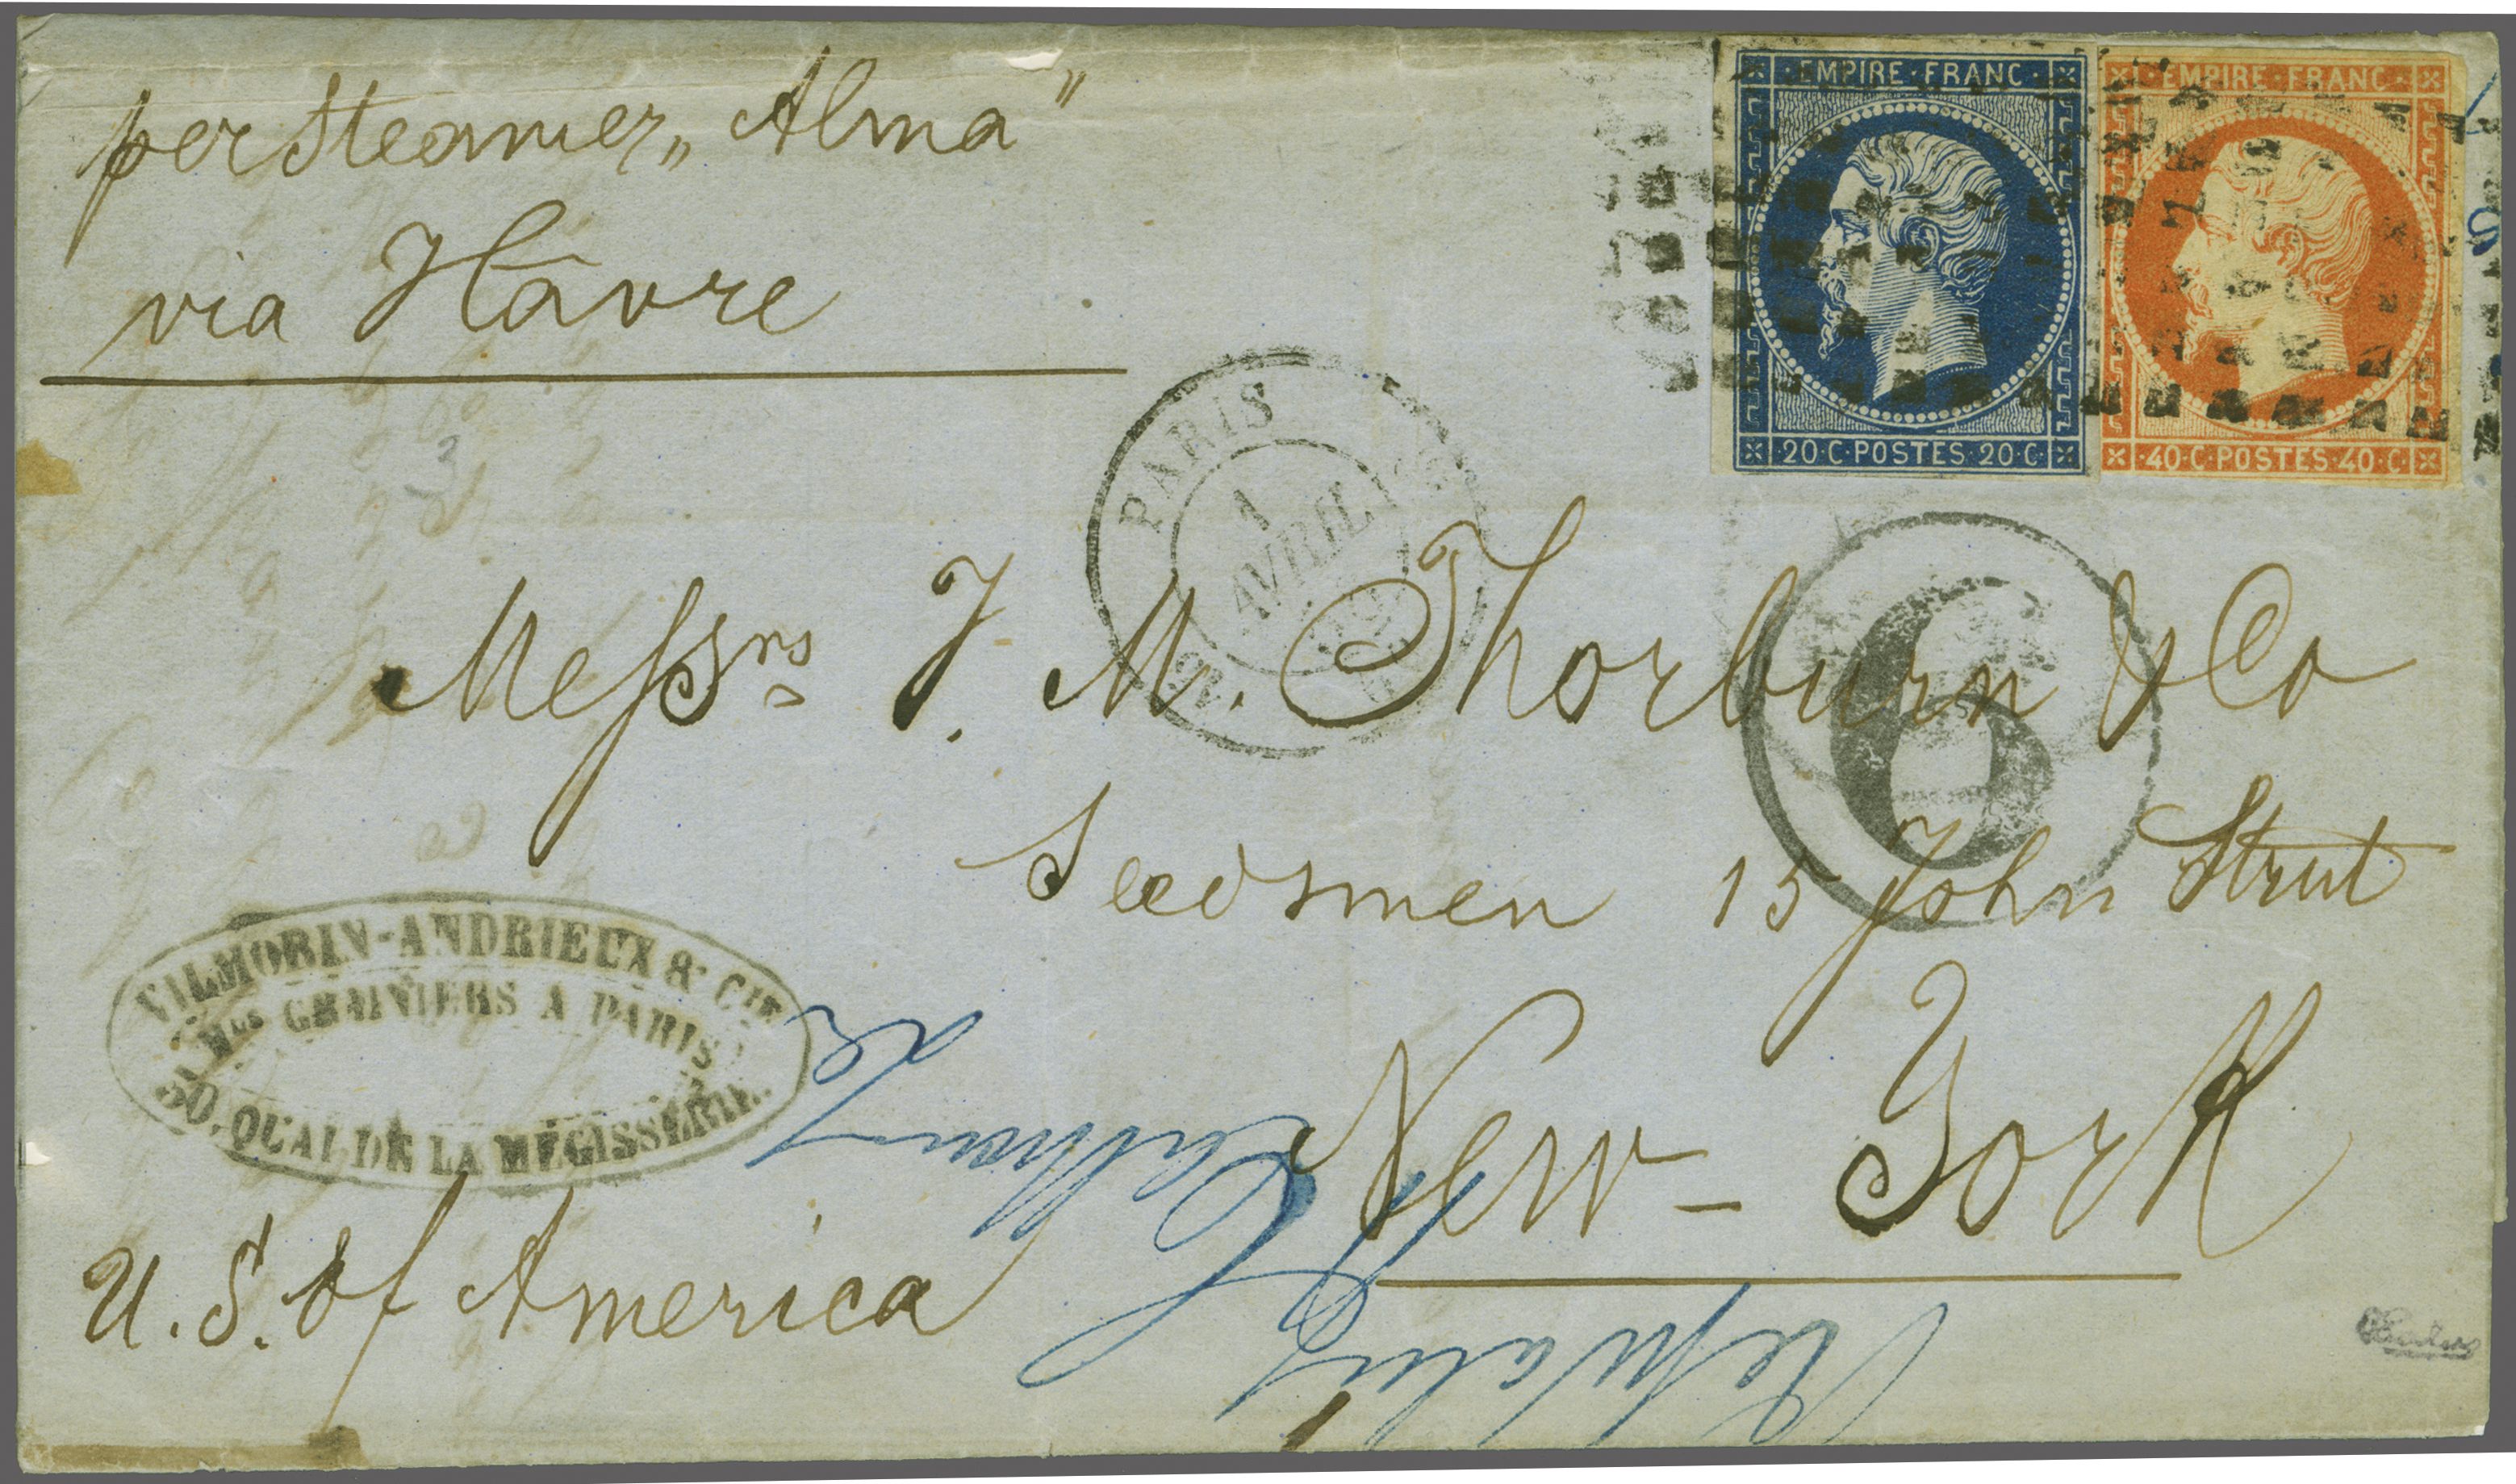 per Steamer „Alma"
via Hâvre
EMPIRE·FRANC·
20·C·POSTES·20·C·
EMPIRE·FRANC·
40·C·POSTES·40·C
PARIS
1
AVRIL
6
Messrs J. M. Thorburn & Co
Seedsmen 15 John Street
New-York
U. S. of America
VILMORIN-ANDRIEUX & CIE
Mds GRAINIERS A PARIS
30, QUAI DE LA MÉGISSERIE.